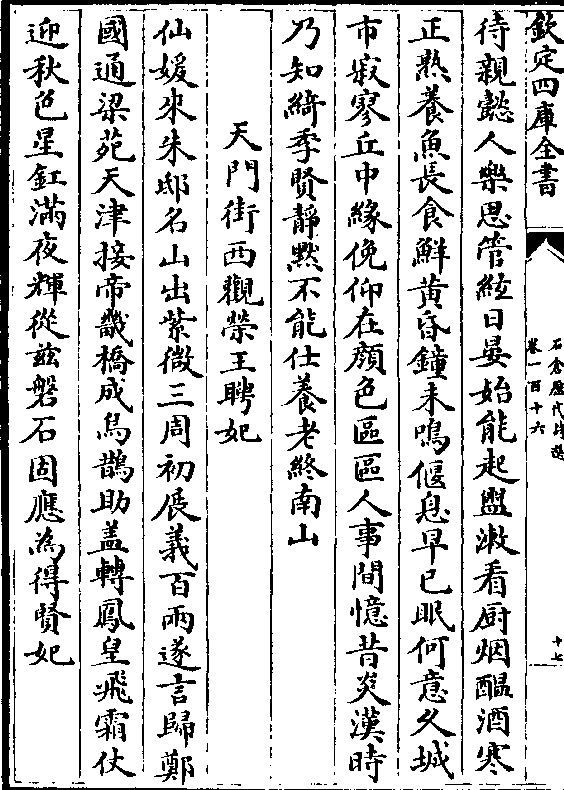 欽定四庫全書
石倉歷代詩選
卷一百十六
十七
待親懿人樂思管絃日晏始能起盥漱看厨烟醖酒寒
正熟養魚長食鮮黄昏鐘未鳴偃息早已眠何意久城
市寂寥丘中緣俛仰在顔色區區人事間憶昔炎漢時
乃知綺季賢靜黙不能仕養老終南山
天門街西觀榮王聘妃
仙媛來朱邸名山出紫微三周初展義百兩遂言歸鄭
國通梁苑天津接帝畿橋成烏鵲助盖轉鳳皇飛霜仗
迎秋色星釭滿夜輝從兹磐石固應為得賢妃